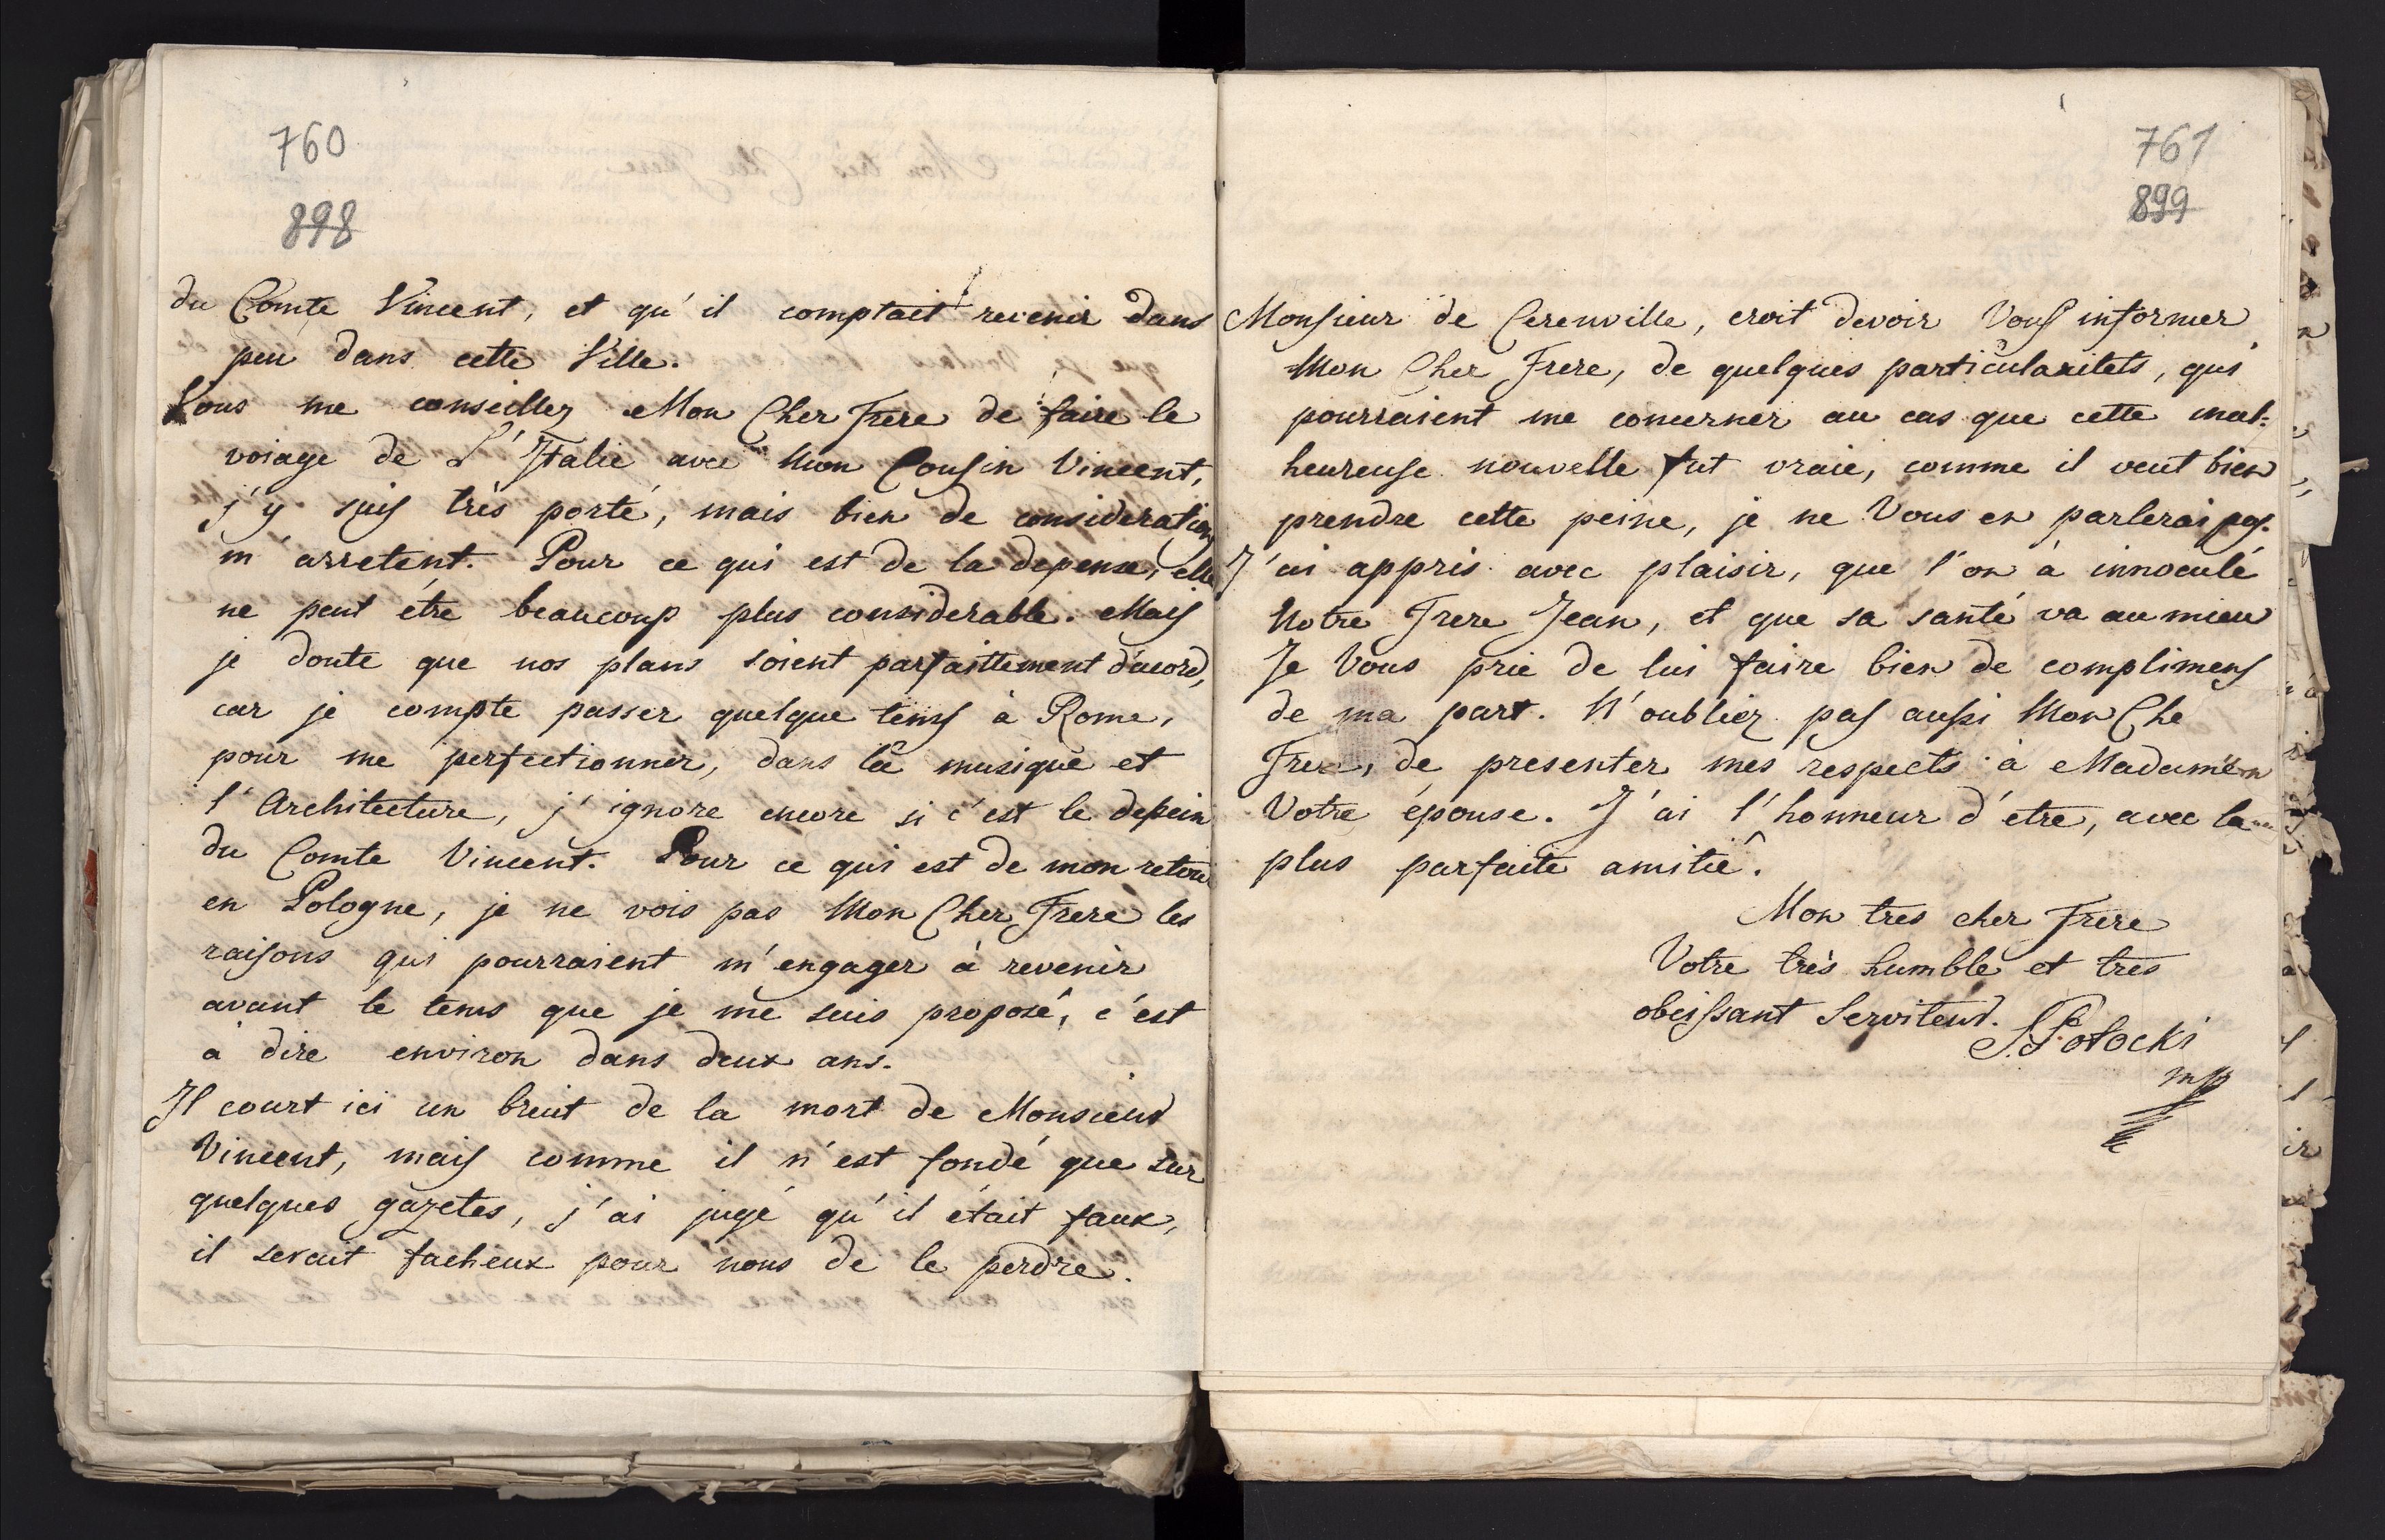 760
898
du Comte Vincent, et qu'il comptait revenir dans
peu dans cette Ville.
Vous me conseillez Mon Cher Frere de faire le
voiage de L'Italie avec Mon Cousin Vincent,
j'y suis très porté, mais bien de consideration
m'arretent. Pour ce qui est de la depense, elle
ne peut étre beaucoup plus considerable. Mais
je doute que nos plans soient parfaittement d'acord,
car je compte passer quelque tems à Rome,
pour me perfectionner, dans la musique et
l'Architecture, j'ignore encore si c'est le dessein
du Comte Vincent. Pour ce qui est de mon retour
en Pologne, je ne vois pas Mon Cher Frere les
raisons qui pourraient m'engager à revenir
avant le tems que je me suis proposé, c'est
à dire environ dans deux ans.
Il court ici un bruit de la mort de Monsieur
Vincent, mais comme il n'est fondé que sur
quelques gazetes, j'ai jugé qu'il était faux,
il serait facheux pour nous de le perdre.
761
899
Monsieur de Cerenville, croit devoir Vous informer
Mon Cher Frere, de quelques particularitets, qui
pourraient me concerner au cas que cette mal:
heureuse nouvelle fut vraie, comme il veut bien
prendre cette peine, je ne Vous en parlerai pas.
J'ai appris avec plaisir, que l'on à innoculé
Notre Frere Jean, et que sa santé va au mieu
Je Vous prie de lui faire bien de complimens
de ma part. N'oubliez pas aussi Mon Che
Frere, de presenter mes respects à Madame
Votre épouse. J'ai l'honneur d'etre, avec la
plus parfaite amitié.
Mon tres cher Frere
Votre très humble et tres
obeissant Serviteur.
S. Potocki
mp